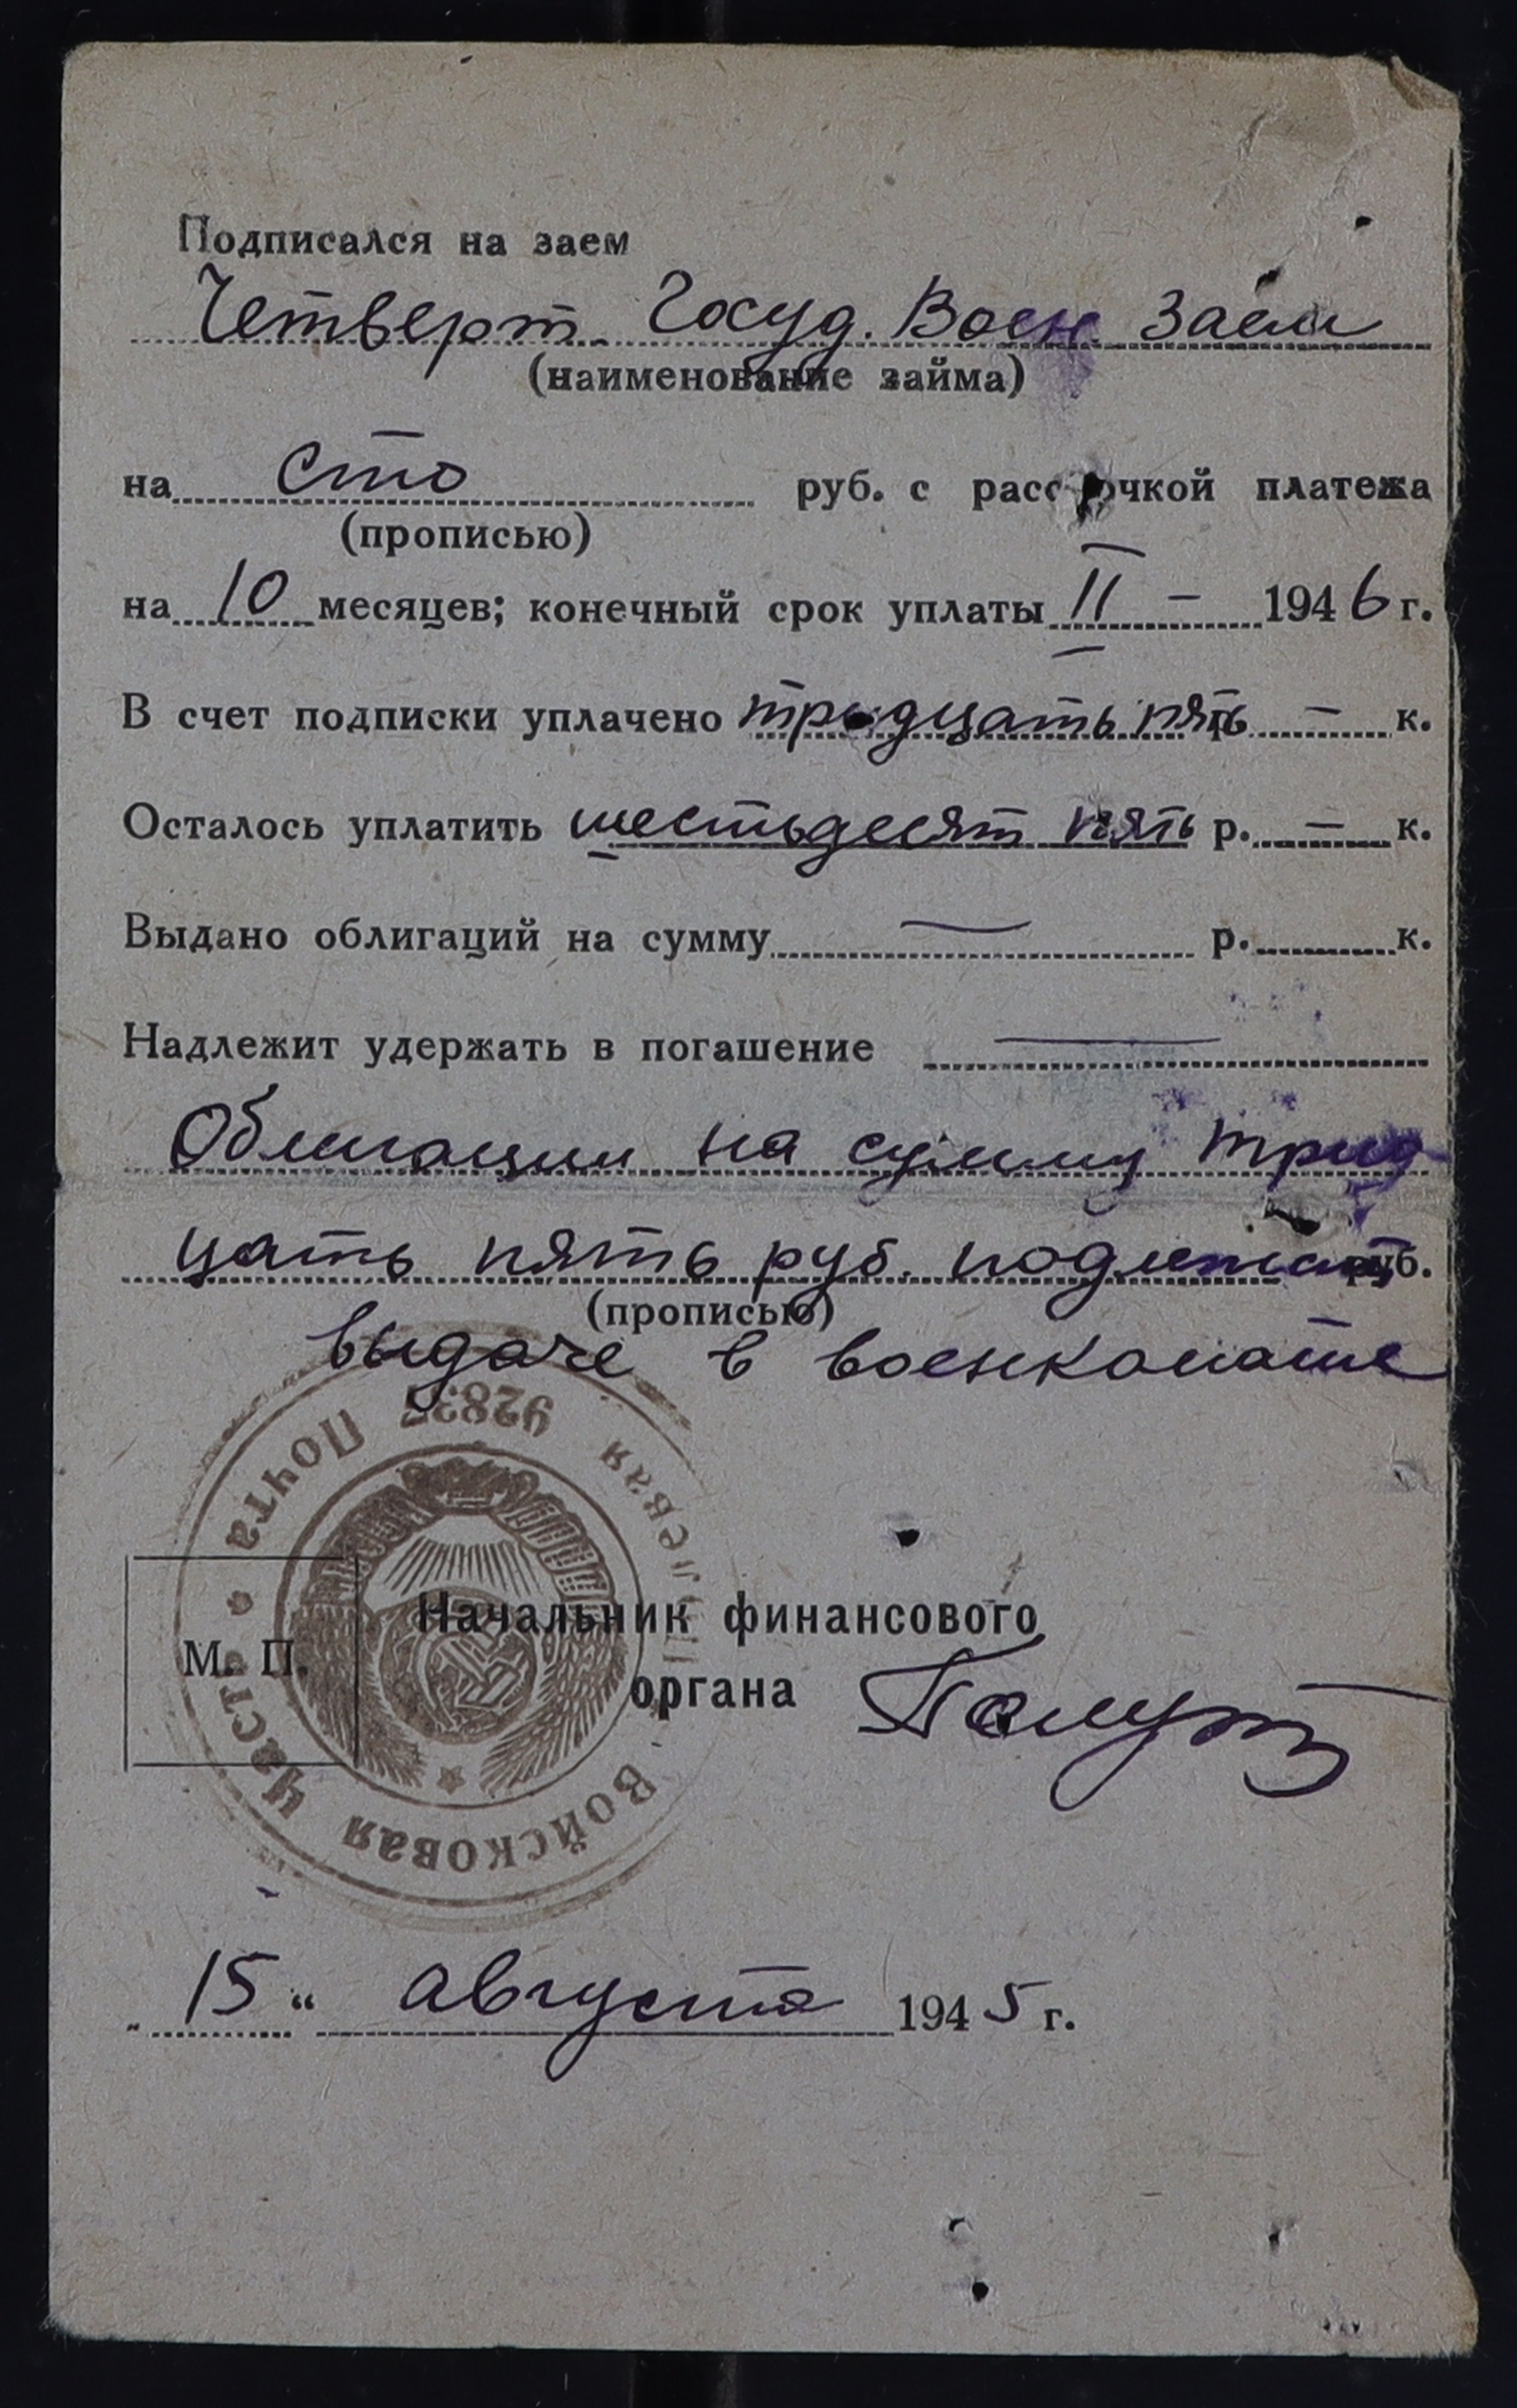 Подписался на заем
Четверт. Госуд. Воен. Заем
(наименование займа)
на сто руб. с рассрочкой платежа
(прописью)
на 10 месяцев; конечный срок уплаты II – 1946 г.
В счет подписки уплачено тридцать пять р. – к.
Осталось уплатить шестьдесят пять р. – к.
Выдано облигаций на сумму — р. к.
Надлежит удержать в погашение —
Облигации на сумму трид
цать пять руб. подлежат руб.
(прописью)
выдаче в военкомате
Войсковая Часть • Полевая Почта
М. П.
Начальник финансового
органа
„ 15 “ августа 1945 г.